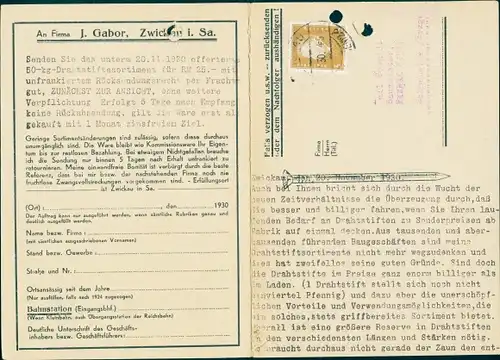 An Firma J. Gabor, Zwickau i. Sa.
Senden Sie das unterm 20.11.1930 offerierte
50-kg-Drahtstiftsortiment für RM 25.- mit
unfrankiertem Rücksendungsrecht per Fracht-
gut, ZUNÄCHST ZUR ANSICHT, ohne weitere
Verpflichtung Erfolgt 5 Tage nach Empfang
keine Rücksendung, gilt die Ware erst als
gekauft mit 1 Monat zinsfreien Ziel.
Geringe Sortimentsänderungen sind zulässig, sofern diese durchaus
unumgänglich sind. Die Ware bleibt wie Kommissionsware Ihr Eigen-
tum bis zur restlosen Bezahlung. Bei etwaigem Nichtgefallen brauche
ich die Sendung nur binnen 5 Tagen nach Erhalt unfrankiert zu
retournieren. Meine einwandfreie Bonität ist verbürgt durch die beste
Referenz, dass bei mir bzw. der nachstehenden Firma noch nie
fruchtlose Zwangsvollstreckungen vorgekommen sind. - Erfüllungsort
ist Zwickau in Sa.
(Ort) , den 1930
Der Auftrag kann nur ausgeführt werden, wenn sämtliche Rubriken genau und
deutlich ausgefüllt werden.
Name bezw. Firma:
(mit sämtlichen ausgeschriebenen Vornamen)
Stand bezw. Gewerbe:
Straße und Nr.:
Ortsansässig seit dem Jahre
(Nur ausfüllen, falls nach 1924 zugezogen)
Bahnstation (Eingangsbhf.)
(Wenn Kleinbahn, auch Übergangsstation der Reichsbahn)
Deutliche Unterschrift des Geschäfts-
inhabers bezw. Geschäftsführers:
Falls verzogen u.s.w. — zurücksenden
oder dem Nachfolger aushändigen!
Firma
Herrn
(tit.)
Zwickau, 20. November 1930
Auch bei Ihnen bricht sich durch die Wucht der
neuen Zeitverhältnisse die Überzeugung durch, daß
es besser und billiger fahren, wenn Sie Ihren lau-
fenden Bedarf an Drahtstiften zu Sonderpreisen ab
Fabrik auf einmal decken. Aus tausenden und aber-
tausenden führenden Baugeschäften sind meine
Drahtstiftsortimente nicht mehr wegzudenken und
dies hat zweifellos seine guten Gründe. Sind doch
die Drahtstifte im Preise ganz enorm billiger als
im Laden. (1 Drahtstift stellt sich noch nicht
einviertel Pfennig) und dazu aber die unerschöpf-
lichen Vorteile und Verwendungsmöglichkeiten, die
ein solches, stets griffbereites Sortiment bietet.
Überall ist eine größere Reserve in Drahtstiften
in den verschiedenen Längen und Stärken nötig.
Gebraucht durchaus nicht gerade der Zaun den ent-